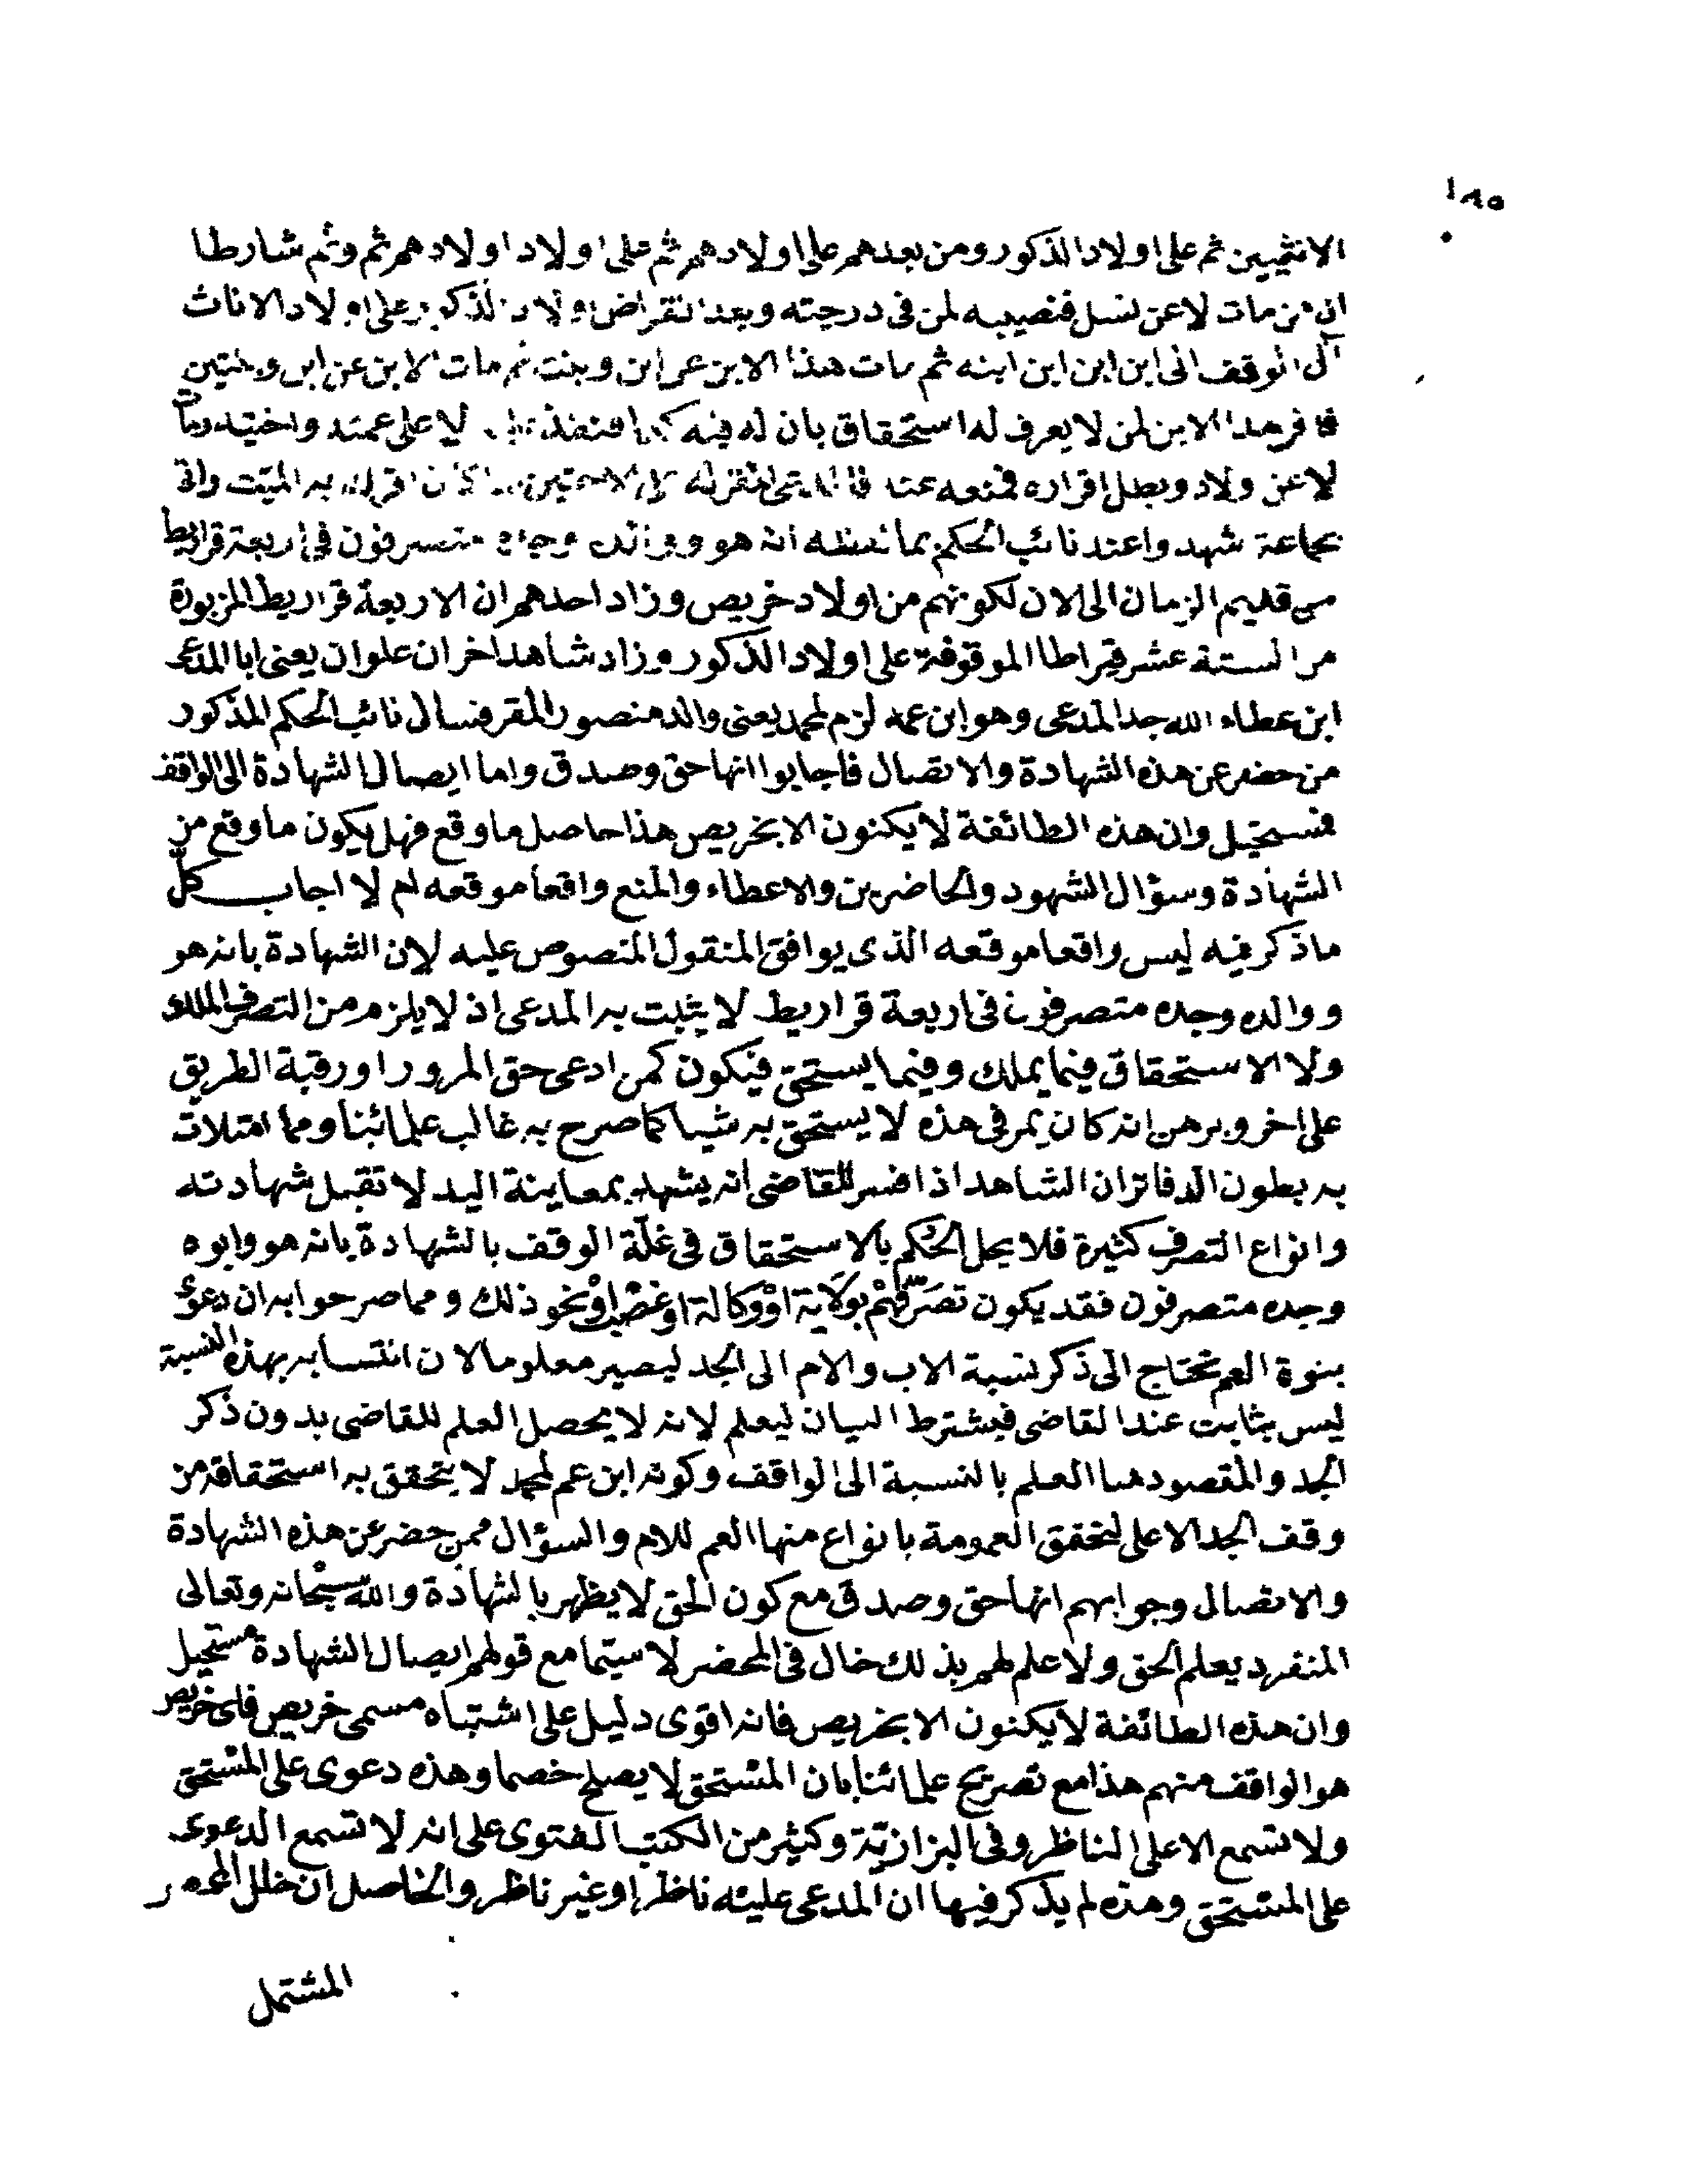 ١٨٥
الانثيين ثم على اولاد الذكور ومن بعدهم على اولادهم ثم على اولاد اولادهم ثم وثم شارطا
ان من مات لا عن نسل فنصيبه لمن فى درجته وبعد انقراض اولاد الذكور على اولاد الاناث
آل الوقف الى ابن ابن ابن ابنه ثم مات هذا الابن عن ابن وبنت ثم مات الابن عن ابن وبنتين
فاقر هذا الابن لمن لا يعرف له استحقاق بان له فيه لا على عمته واختيه ومات
لا عن ولاد وبطل اقراره فمنعه عنه المقر له على ان اقر له به الميت واتى
بجماعة شهدوا عند نائب الحكم بما انه هو ووالده وجده متصرفون فى اربعة قراريط
من قديم الزمان الى الان لكونهم من اولاد خريص وزاد احدهم ان الاربعة قراريط المزبورة
من الستة عشر قيراطا الموقوفة على اولاد الذكور وزاد شاهد اخر ان علوان يعنى ابا المدعى
ابن عطاء الله جد المدعى وهو ابن عم لزم لمحمد يعنى والد منصور المقر فسال نائب الحكم المذكور
من حضر عن هذه الشهادة والاتصال فاجابوا انها حق وصدق واما ايصال الشهادة الى الواقف
فمستحيل وان هذه الطائفة لا يكنون الا بخريص هذا حاصل ما وقع فهل يكون ما وقع من
الشهادة وسؤال الشهود والحاضرين والاعطاء والمنع واقعا موقعه ام لا اجاب كل
ما ذكر فيه ليس واقعا موقعه الذى يوافق المنقول المنصوص عليه لان الشهادة بانه هو
ووالده وجده متصرفون فى اربعة قراريط لا يثبت به المدعى اذ لا يلزم من التصرف الملك
ولا الاستحقاق فيما يملك وفيما يستحق فيكون كمن ادعى حق المرور او رقبة الطريق
على اخر وبرهن انه كان يمر فى هذه لا يستحق به شيا كما صرح به غالب علمائنا ومما امتلات
به بطون الدفاتر ان الشاهد اذا فسر للقاضى انه يشهد بمعاينة اليد لا تقبل شهادته
وانواع التصرف كثيرة فلا يحل الحكم بالاستحقاق فى غلة الوقف بالشهادة بانه هو وابوه
وجده متصرفون فقد يكون تصرفهم بولاية او وكالة او غصب او نحو ذلك ومما صرحوا به ان دعوى
بنوة العم تحتاج الى ذكر نسبة الاب والام الى الجد ليصير معلوما لان انتسابه بهذه النسبة
ليس بثابت عند القاضى فيشترط البيان ليعلم لانه لا يحصل العلم للقاضى بدون ذكر
الجد والمقصود هنا العلم بالنسبة الى الواقف وكونه ابن عم لمحمد لا يتحقق به استحقاقه من
وقف الجد الاعلى لتحقق العمومة بانواع منها العم للام والسؤال ممن حضر عن هذه الشهادة
والاتصال وجوابهم انها حق وصدق مع كون الحق لا يظهر بالشهادة والله سبحانه وتعالى
المنفرد يعلم الحق ولا علم لهم بذلك خال فى المحضر لا سيما مع قولهم ايصال الشهادة مستحيل
وان هذه الطائفة لا يكنون الا بخريص فانه اقوى دليل على اشتباه مسمى خريص فاى خريص
هو الواقف منهم هذا مع تصريح علمائنا بان المستحق لا يصلح خصما وهذه دعوى على المستحق
ولا تسمع الا على الناظر وفى البزازية وكثير من الكتب الفتوى على انه لا تسمع الدعوى
على المستحق وهذه لم يذكر فيها ان المدعى عليه ناظر او غير ناظر والحاصل ان خلل المحضر
المشتمل